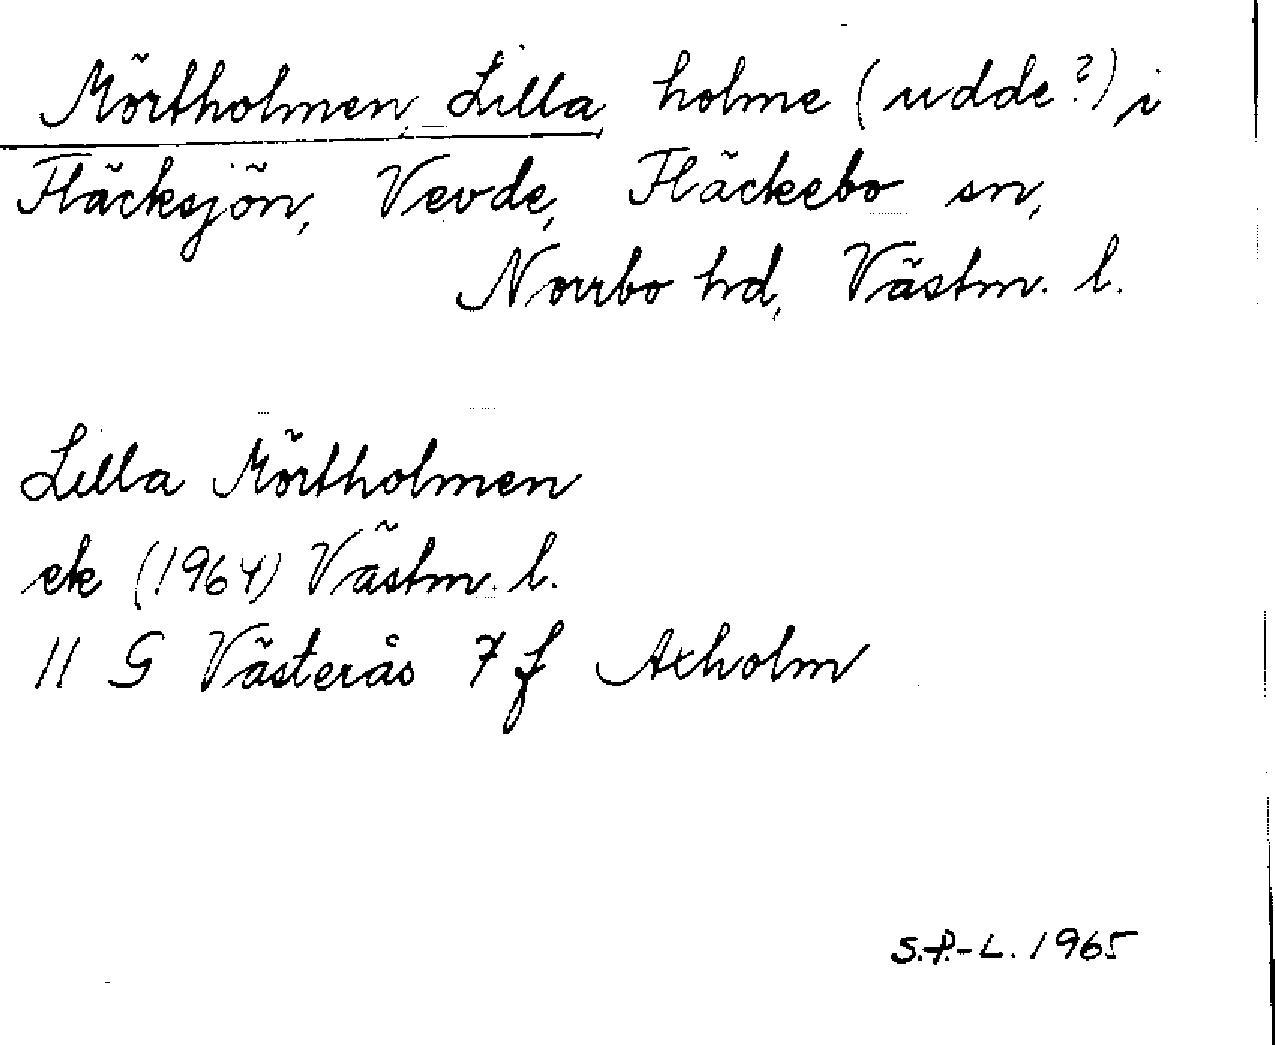 Mörtholmen, Lilla, holme (udde?) i
Fläcksjön, Vevde, Fläckebo sn,
Norrbo hd, Västm. l.
Lilla Mörtholmen
ek (1964) Västm. l.
11 G Västerås 7 f Axholm
S.P.-L. 1965